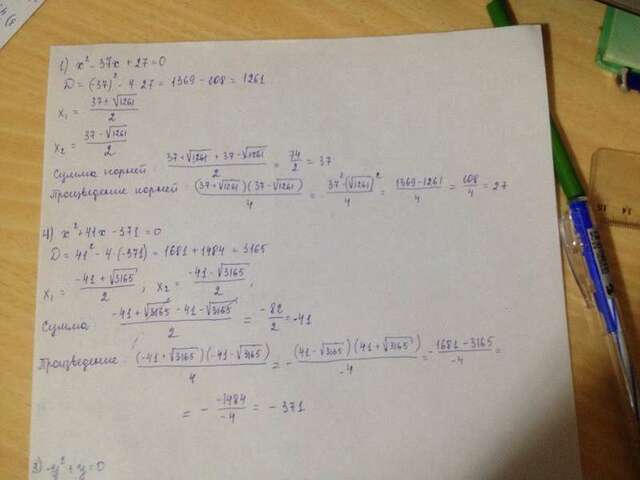 1) x² - 37x + 27 = 0
D = (-37)² - 4·27 = 1369 - 108 = 1261
x₁ = (37 + √1261)/2
x₂ = (37 - √1261)/2
Сумма корней : (37 + √1261 + 37 - √1261)/2 = 74/2 = 37
Произведение корней : (37 + √1261)(37 - √1261)/4 = (37² - (√1261)²)/4 = (1369 - 1261)/4 = 108/4 = 27
4) x² + 41x - 371 = 0
D = 41² - 4·(-371) = 1681 + 1484 = 3165
x₁ = (-41 + √3165)/2 ; x₂ = (-41 - √3165)/2 ;
Сумма (-41 + √3165 - 41 - √3165)/2 = -82/2 = -41
Произведение : (-41 + √3165)(-41 - √3165)/4 = -(41 - √3165)(41 + √3165)/-4 = -(1681 - 3165)/-4 =
= - -1484/-4 = -371
3) -y² + y = 0